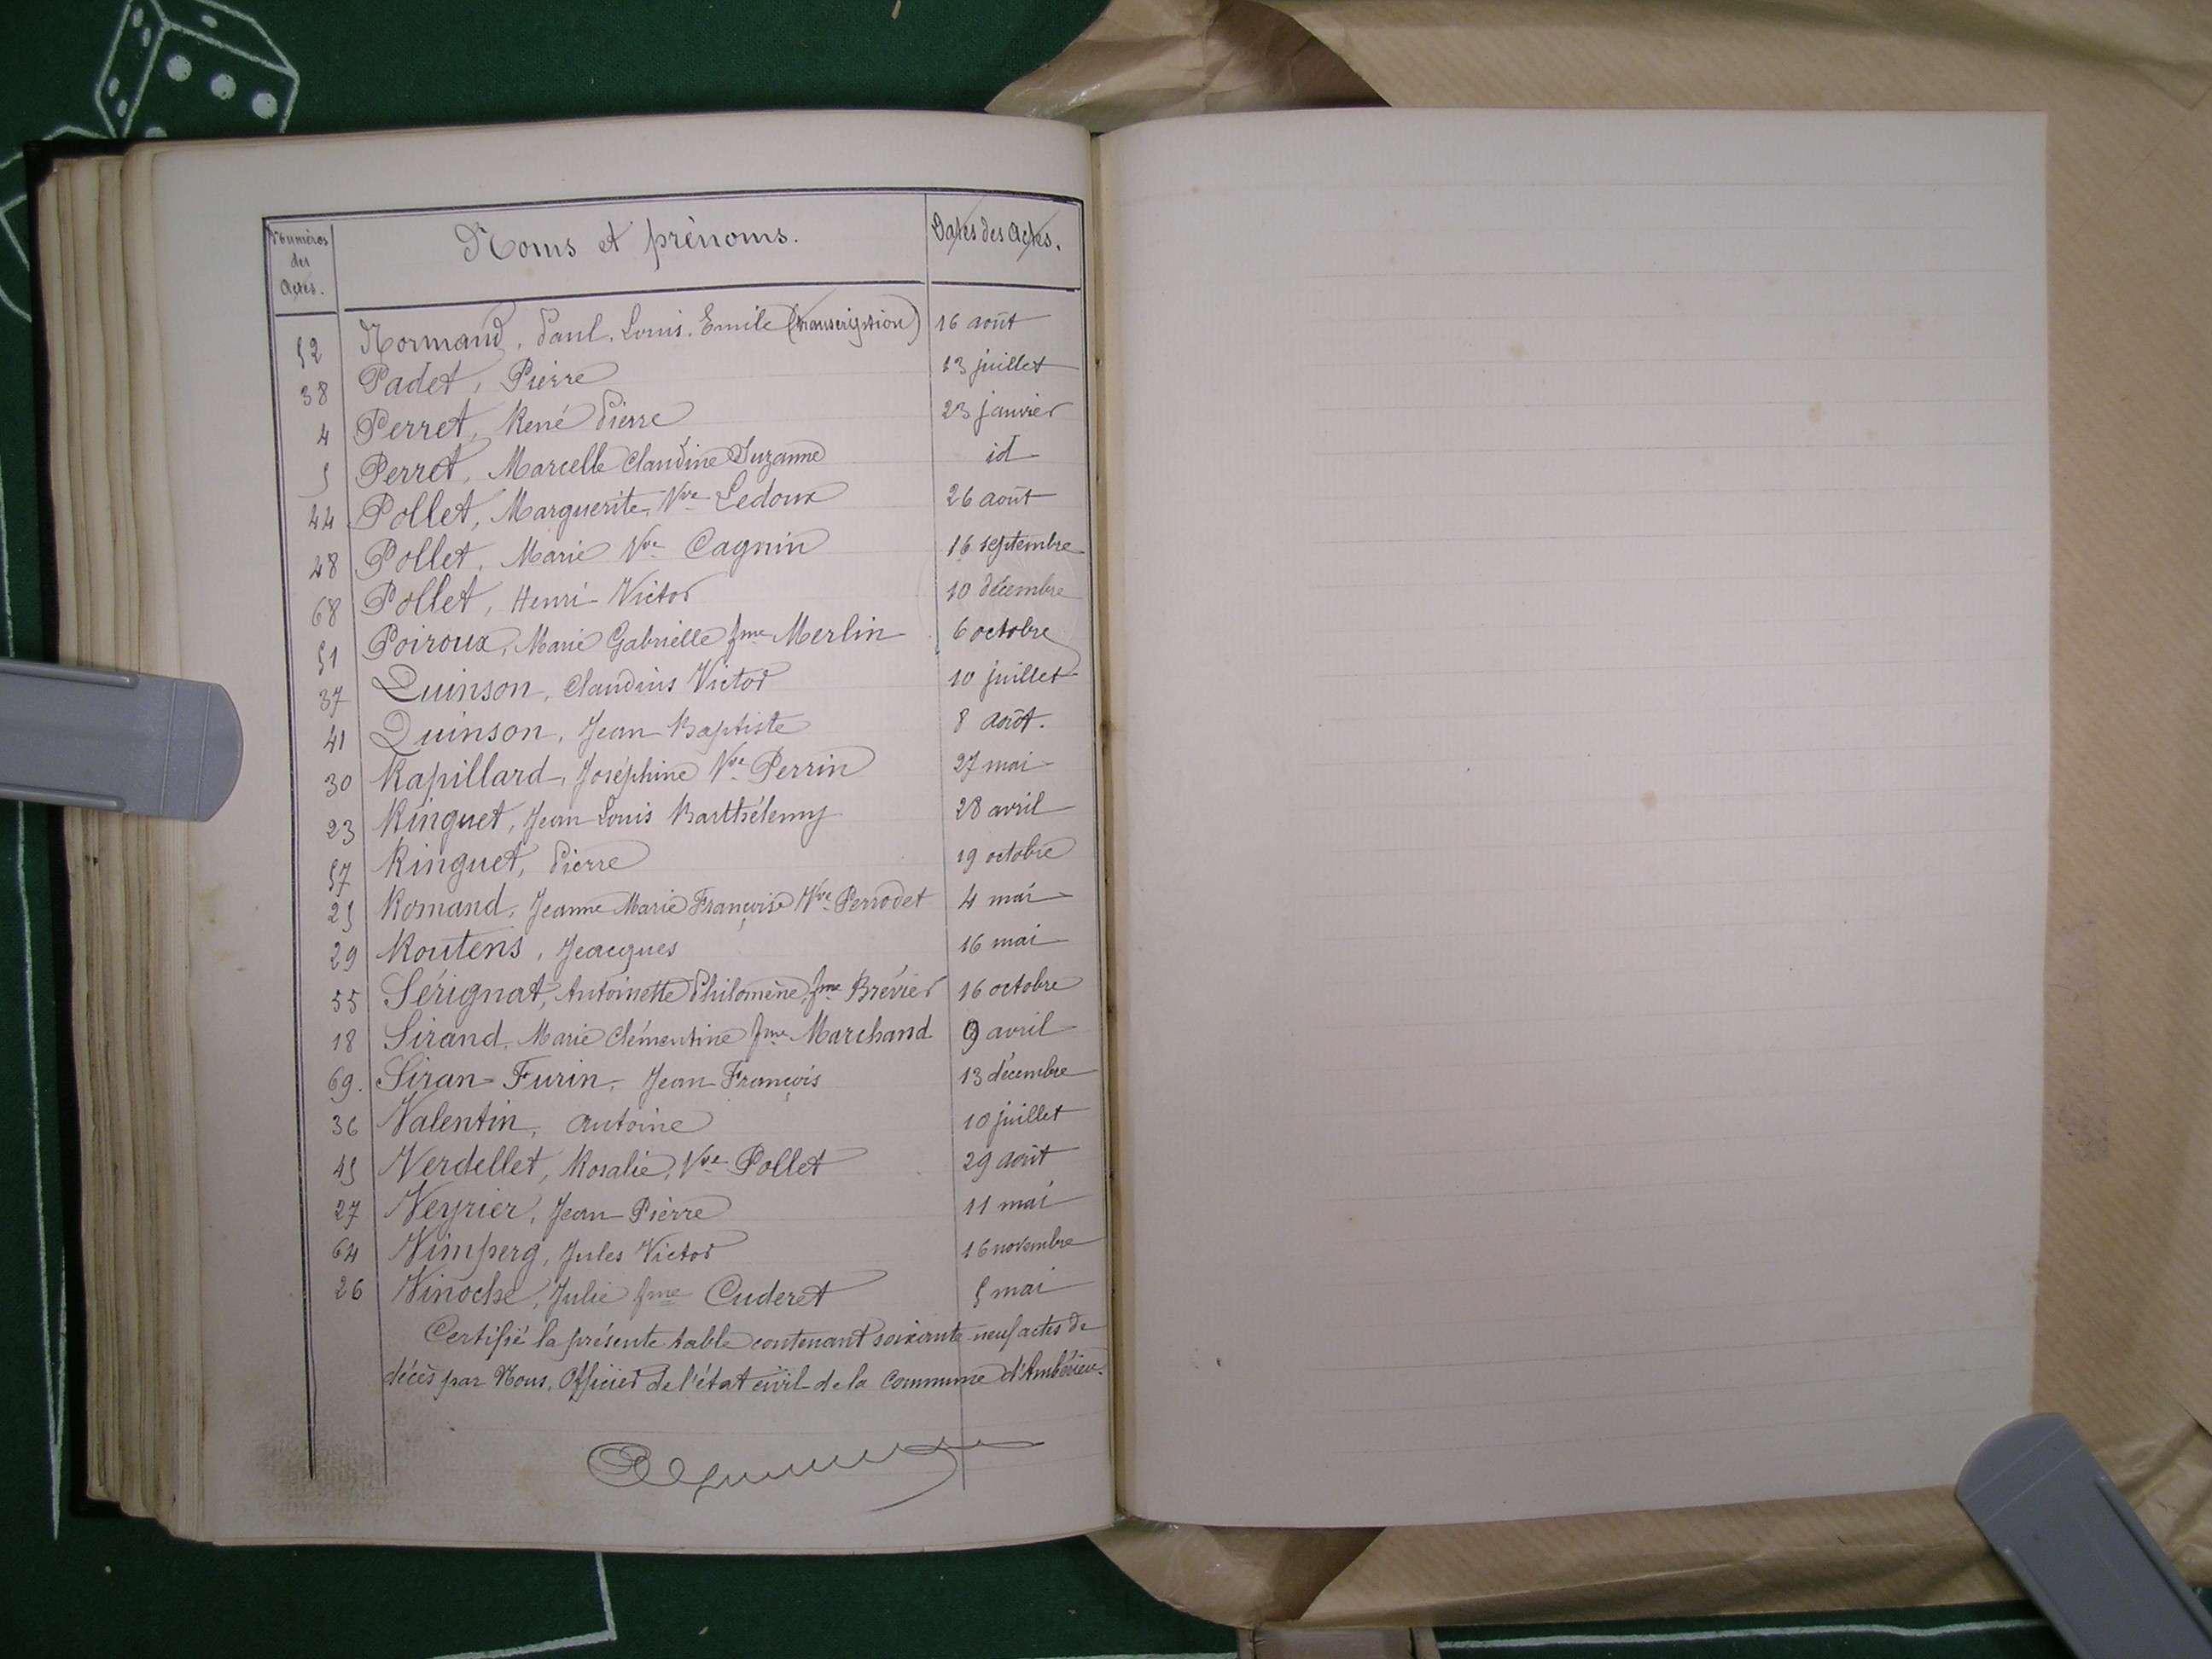 Numéros des Actes. Noms et prénoms. Dates des Actes.
52 Normand, Paul, Louis, Emile (transcription) 16 août
38 Padet, Pierre 13 juillet
4 Perret, René Pierre 23 janvier
5 Perret, Marcelle Claudine Suzanne id
44 Pollet, Marguerite, Vve Ledoux 26 août
48 Pollet, Marie Vve Cagnin 16 septembre
68 Pollet, Henri Victor 10 décembre
51 Poiroux, Marie Gabrielle fme Merlin 6 octobre
37 Quinson, Claudius Victor 10 juillet
41 Quinson, Jean Baptiste 8 août.
30 Rapillard, Joséphine Vve Perrin 27 mai
23 Ringuet, Jean Louis Barthélemy 28 avril
57 Ringuet, Pierre 19 octobre
25 Romand, Jeanne Marie Françoise Vve Perrodet 4 mai
29 Routens, Jeacques 16 mai
55 Sérignat, Antoinette Philomène, fme Brévier 16 octobre
18 Sirand, Marie Clémentine fme Marchand 9 avril
69. Siran-Furin, Jean François 13 décembre
36 Valentin, Antoine 10 juillet
45 Verdellet, Rosalie, Vve Pollet 29 août
27 Veyrier, Jean Pierre 11 mai
64 Vimperg, Jules Victor 16 novembre
26 Vinoche, Julie fme Cuderet 5 mai
Certifié la présente table contenant soixante-neuf actes de
décès par Nous, Officier de l'état civil de la Commune d'Ambérieu.